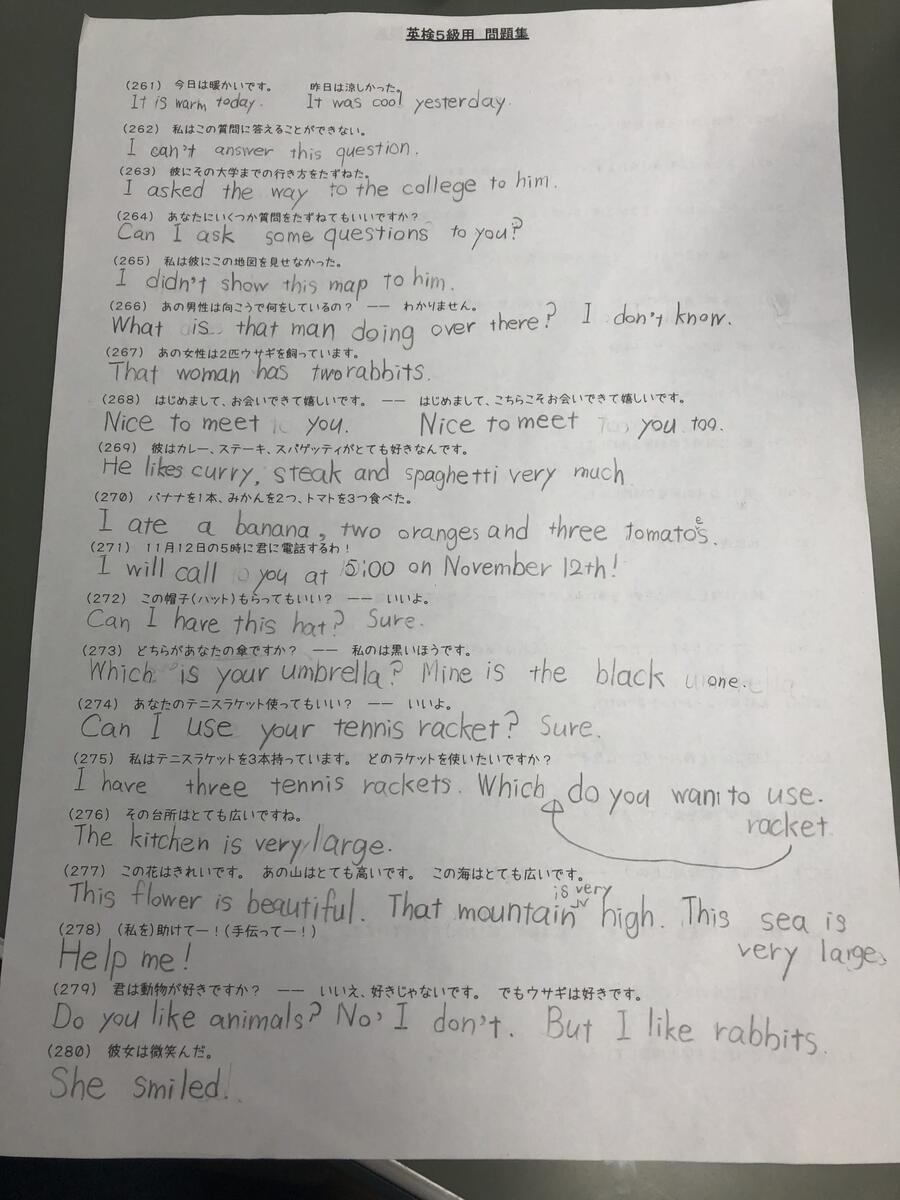 英検5級用 問題集
(261) 今日は暖かいです。 昨日は涼しかった。
It is warm today. It was cool yesterday.
(262) 私はこの質問に答えることができない。
I can't answer this question.
(263) 彼にその大学までの行き方をたずねた。
I asked the way to the college to him.
(264) あなたにいくつか質問をたずねてもいいですか?
Can I ask some questions to you?
(265) 私は彼にこの地図を見せなかった。
I didn't show this map to him.
(266) あの男性は向こうで何をしているの? ―― わかりません。
What is that man doing over there? I don't know.
(267) あの女性は2匹ウサギを飼っています。
That woman has two rabbits.
(268) はじめまして、お会いできて嬉しいです。 ―― はじめまして、こちらこそお会いできて嬉しいです。
Nice to meet you. Nice to meet you too.
(269) 彼はカレー、ステーキ、スパゲッティがとても好きなんです。
He likes curry, steak and spaghetti very much
(270) バナナを1本、みかんを2つ、トマトを3つ食べた。
I ate a banana, two oranges and three tomatoes.
(271) 11月12日の5時に君に電話するわ!
I will call you at 5:00 on November 12th!
(272) この帽子(ハット)もらってもいい? ―― いいよ。
Can I have this hat? Sure.
(273) どちらがあなたの傘ですか? ―― 私のは黒いほうです。
Which is your umbrella? Mine is the black one.
(274) あなたのテニスラケット使ってもいい? ―― いいよ。
Can I use your tennis racket? Sure.
(275) 私はテニスラケットを3本持っています。 どのラケットを使いたいですか?
I have three tennis rackets. Which do you want to use.
racket
(276) その台所はとても広いですね。
The kitchen is very large.
(277) この花はきれいです。 あの山はとても高いです。 この海はとても広いです。
is very
This flower is beautiful. That mountain high. This sea is
very large.
(278) (私を)助けてー!(手伝ってー!)
Help me!
(279) 君は動物が好きですか? ―― いいえ、好きじゃないです。 でもウサギは好きです。
Do you like animals? No, I don't. But I like rabbits.
(280) 彼女は微笑んだ。
She smiled.